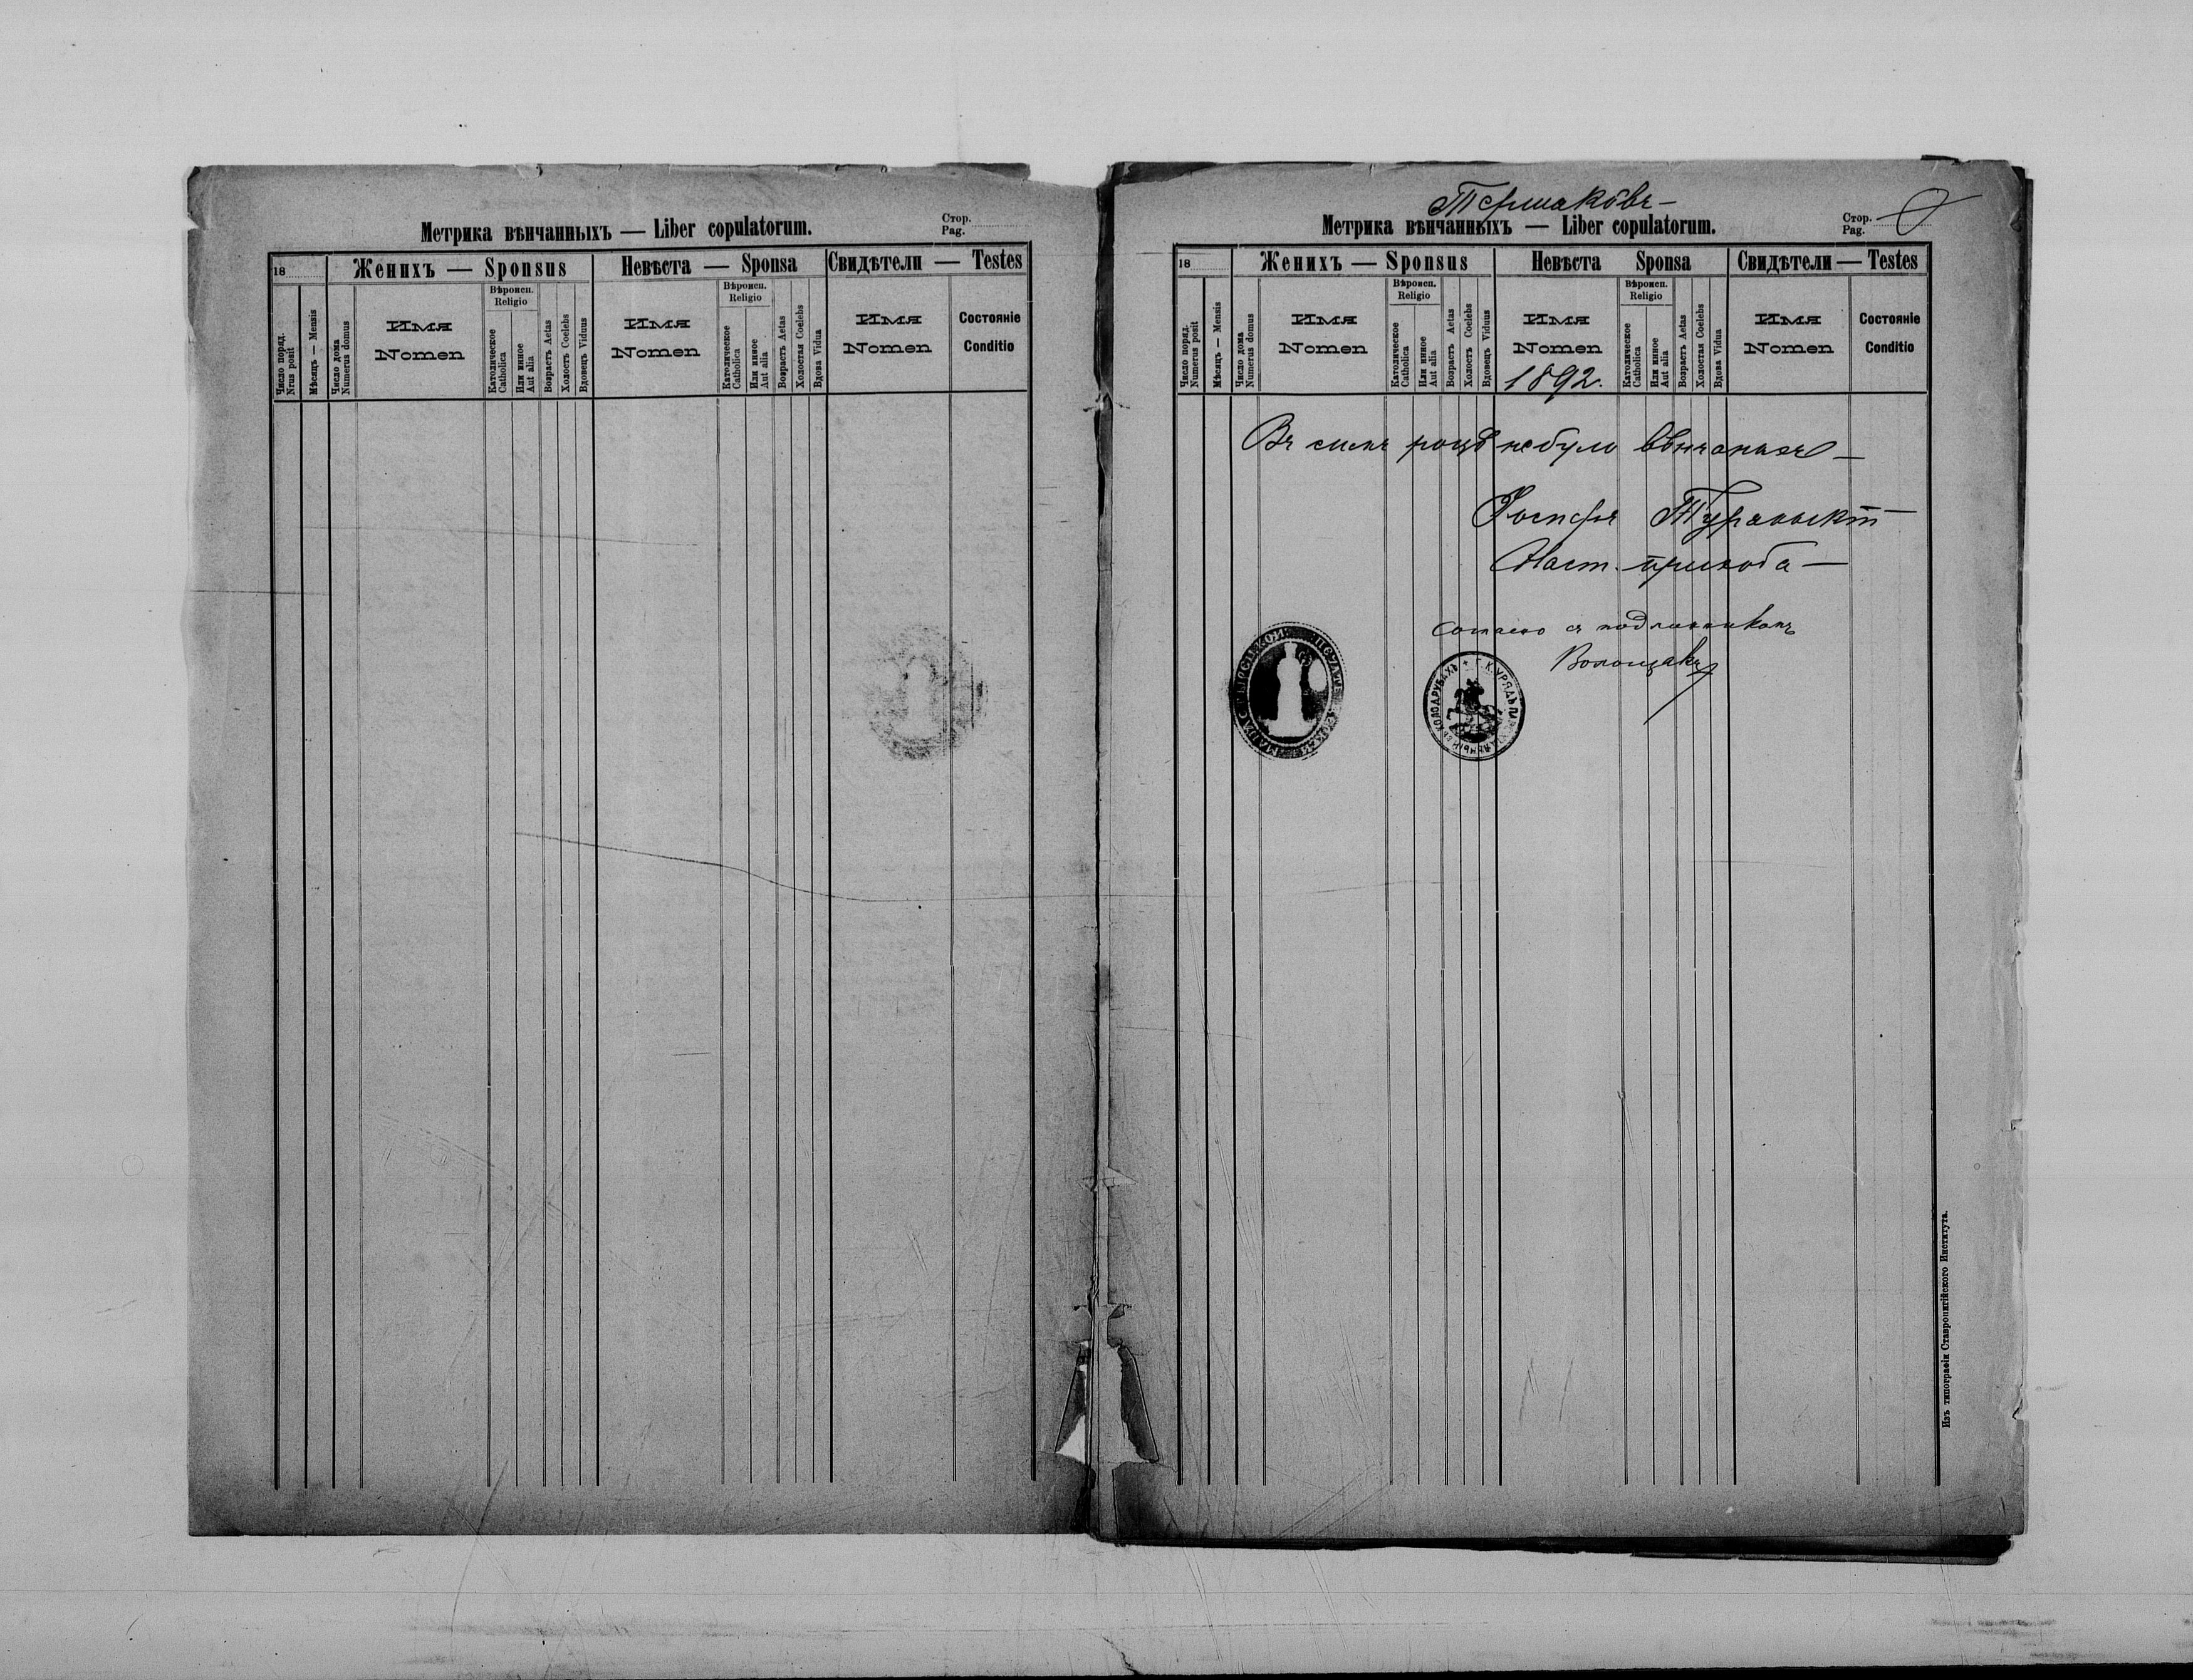 Метрика вѣнчанныхъ — Liber copulatorum.
Стор.
Pag.
18
Женихъ — Sponsus
Невѣста — Sponsa
Свидѣтели — Testes
Число поряд.
Nrus posit
Мѣсяцъ — Mensis
Число дома
Numerus domus
Имя
Nomen
Вѣроисп.
Religio
Католическое
Catholica
Или инное
Aut alia
Возрасть Aetas
Холость Coelebs
Вдовець Viduus
Имя
Nomen
Вѣроисп.
Religio
Католическое
Catholica
Или инное
Aut alia
Возрасть Aetas
Холостая Coelebs
Вдова Vidua
Имя
Nomen
Состояніе
Conditio
Тершаковъ —
Метрика вѣнчанныхъ — Liber copulatorum.
Стор.
Pag.
18
Женихъ — Sponsus
Невѣста Sponsa
Свидѣтели — Testes
Число поряд.
Numerus posit
Мѣсяцъ — Mensis
Число дома
Numerus domus
Имя
Nomen
Вѣроисп.
Religio
Католическое
Catholica
Или инное
Aut alia
Возрасть Aetas
Холость Coelebs
Вдовець Viduus
Имя
Nomen
1892.
Вѣроисп.
Religio
Католическое
Catholica
Или инное
Aut alia
Возрасть Aetas
Холостая Coelebs
Вдова Vidua
Имя
Nomen
Состояніе
Conditio
Въ симъ роцѣ небуло вѣнчаныхъ —
Наст. прихода —
Согласно съ подлинникомъ
Волощакъ
Изъ типографіи Ставропигійского Института.